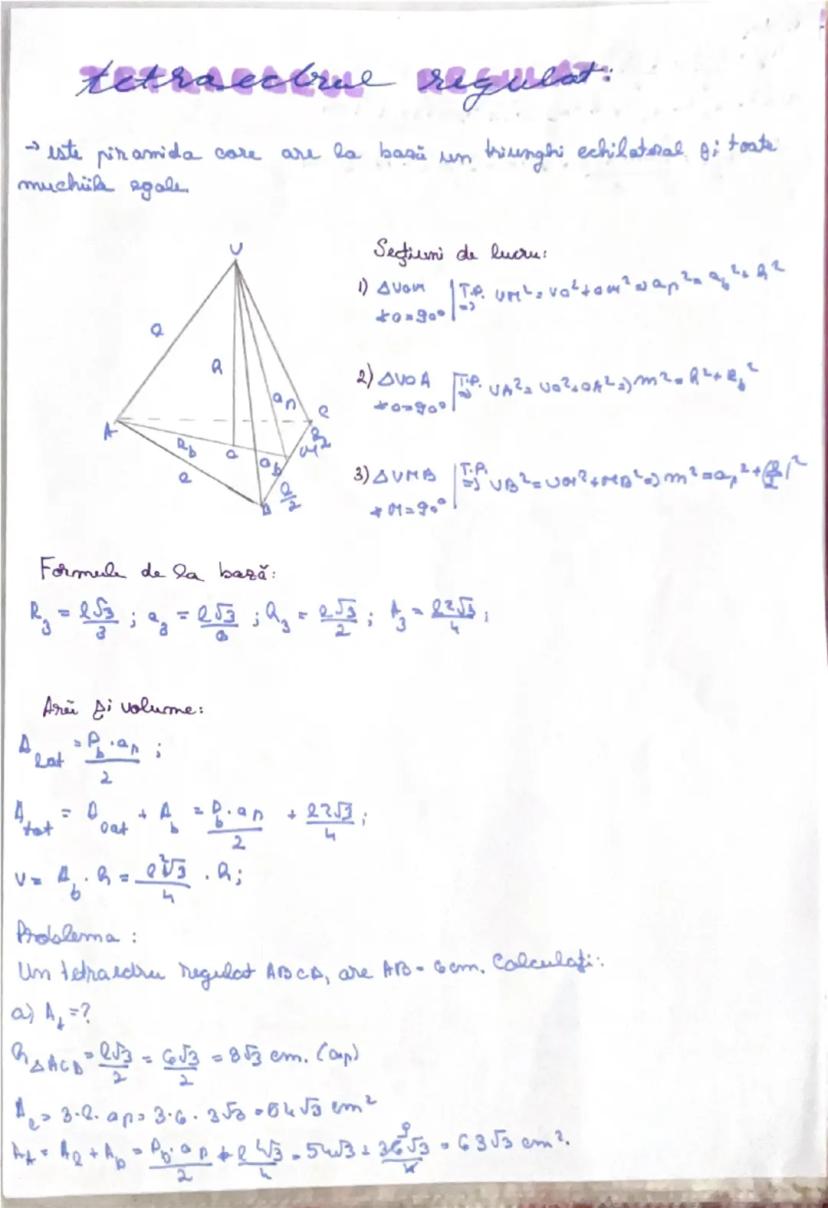 tetraedrul regulat:
→ este piramida care are la bază un triunghi echilateral și toate
muchiile egale
V
Secțiuni de lucru:
1) ΔVOM | T.P. => VM² = VO² + OM² => ap² = ab² + h²
∢O=90°
l
h
ap
2) ΔVOA | T.P. => VA² = VO² + OA² => m² = h² + Rb²
∢O=90°
A
C
Rb
O
ab
M
l/2
l
B
l/2
3) ΔVMB | T.P. => VB² = VM² + MB² => m² = ap² + (l/2)²
∢M=90°
Formule de la bază:
R₃ = l√3/3 ; a₃ = l√3/6 ; h₃ = l√3/2 ; A₃ = l²√3/4 ;
Arii și volume:
A lat = Pb·ap/2 ;
A tot = A lat + Ab = Pb·ap/2 + l²√3/4 ;
V = Ab · h = l²√3/4 · h ;
Problema :
Un tetraedru regulat ABCD, are AB = 6cm. Calculați:
a) At = ?
hΔACD = l√3/2 = 6√3/2 = 3√3 cm. (ap)
Al = 3·l·ap = 3·6·3√3 = 54√3 cm²
At = Al + Ab = Pb·ap/2 + l²√3/4 = 54√3 + 36√3/4 = 63√3 cm².
9